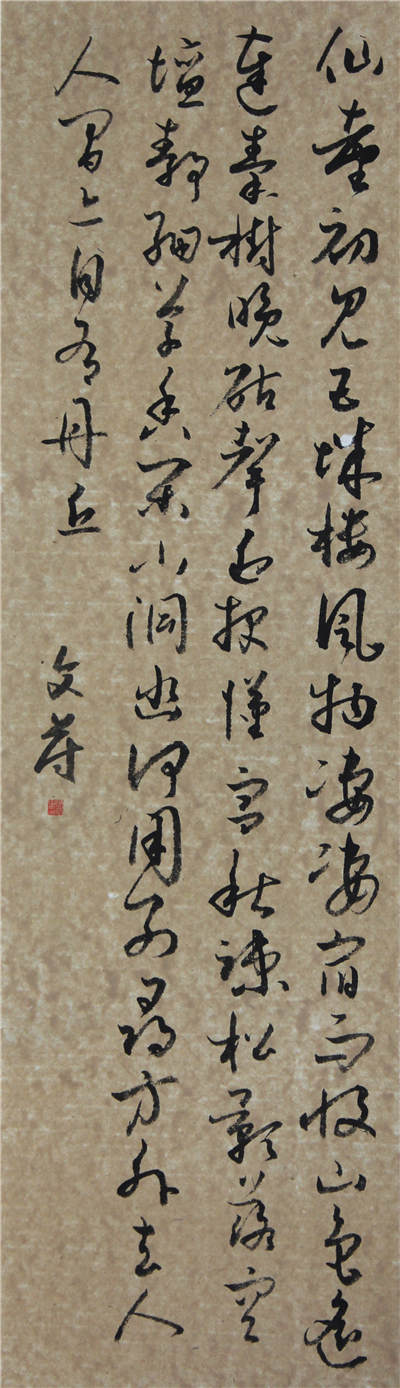 仙臺初見五城樓風物淒淒宿雨收山色遙
連秦樹晚砧聲近報漢宮秋疎松影落空
壇靜細草香閑小洞幽何用別尋方外去人
人間亦自有丹丘
文